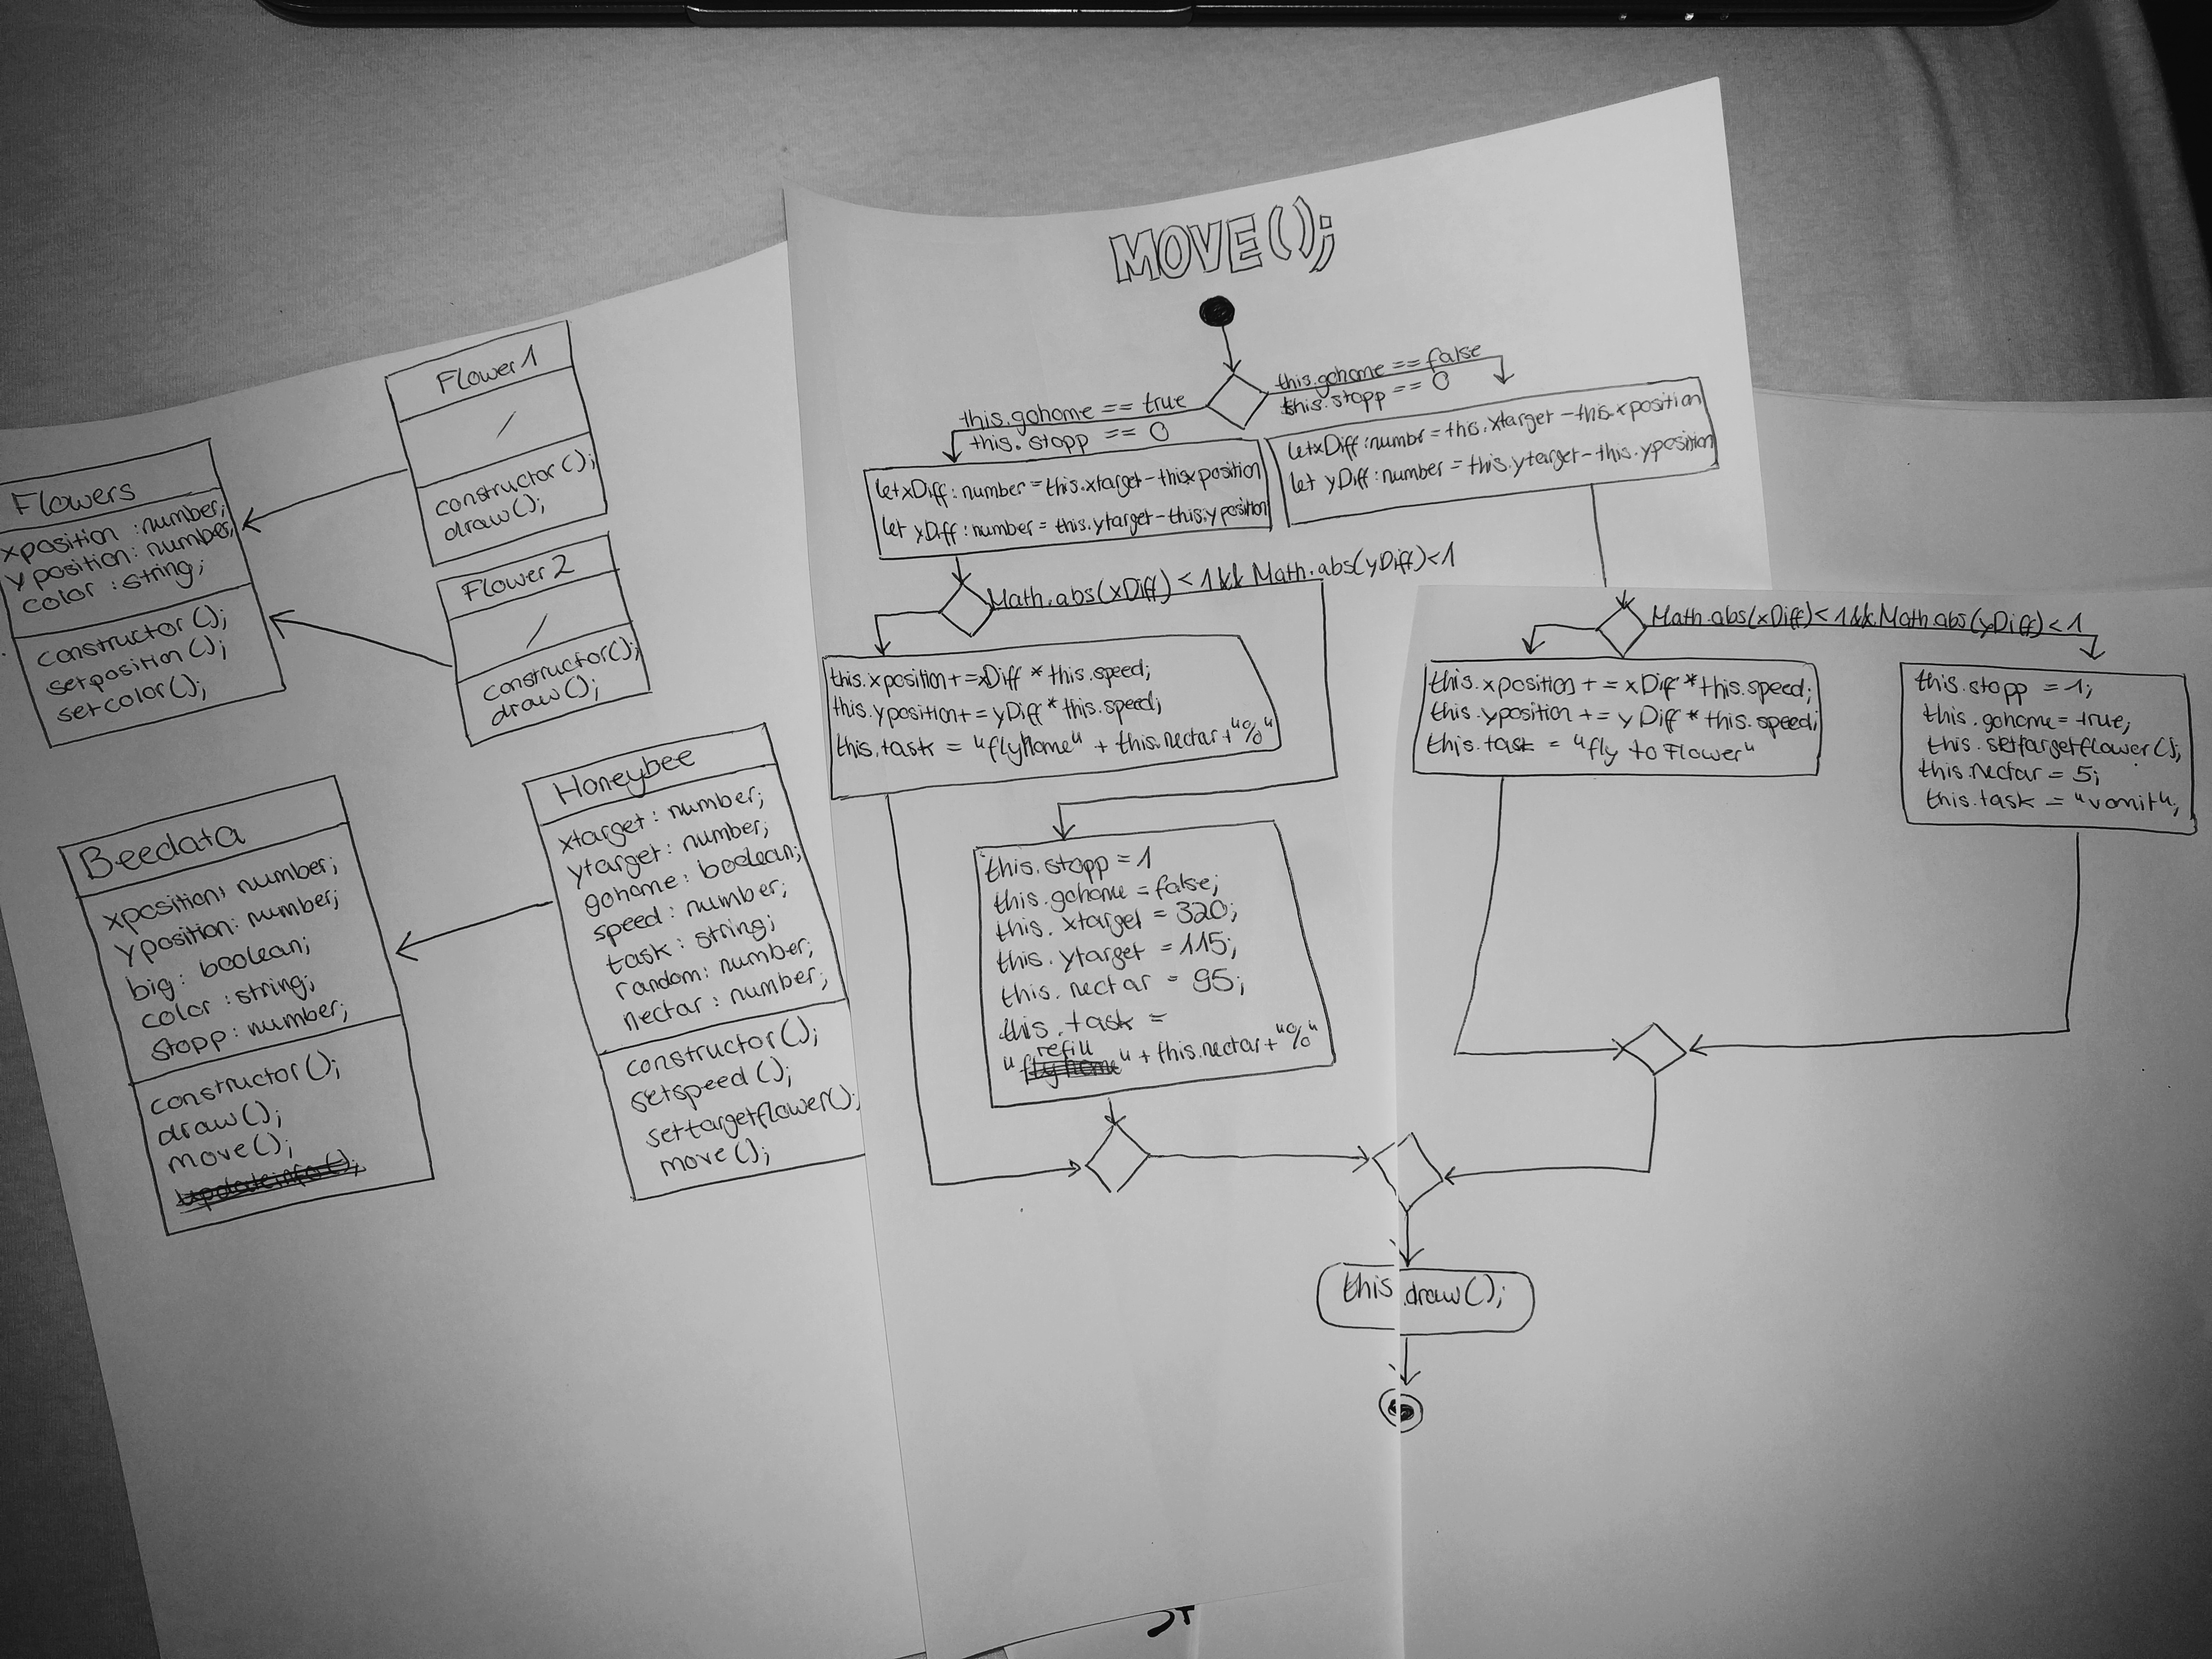 Flower1
/
constructor();
draw();
Flowers
xposition :number;
yposition: number;
color :string;
constructor();
setposition();
setcolor();
Flower2
/
constructor();
draw();
Beedata
xposition: number;
yposition: number;
big: boolean;
color :string;
stopp: number;
constructor();
draw();
move();
updateinfo();
Honeybee
xtarget: number;
ytarget: number;
gohome: boolean;
speed: number;
task: string;
random: number;
nectar: number;
constructor();
setspeed();
settargetflower();
move();
MOVE();
this.gohome == true
this.stopp == 0
this.gohome == false
this.stopp == 0
let xDiff: number = this.xtarget - this.xposition
let yDiff: number = this.ytarget - this.yposition
let xDiff: numbr = this.xtarget - this.xposition
let yDiff: number = this.ytarget - this.yposition
Math.abs(xDiff) < 1 && Math.abs(yDiff) < 1
this.xposition += xDiff * this.speed;
this.yposition += yDiff * this.speed;
this.task = "flyhome" + this.nectar + "%"
this.stopp = 1
this.gohome = false;
this.xtarget = 320;
this.ytarget = 115;
this.nectar = 95;
this.task =
refill
"fly home" + this.nectar + "%"
Math.abs(xDiff) < 1 && Math.abs(yDiff) < 1
this.xposition += xDiff * this.speed;
this.yposition += yDiff * this.speed;
this.task = "fly to Flower"
this.stopp = 1;
this.gohome = true;
this.settargetflower();
this.nectar = 5;
this.task = "vomit";
this.draw();